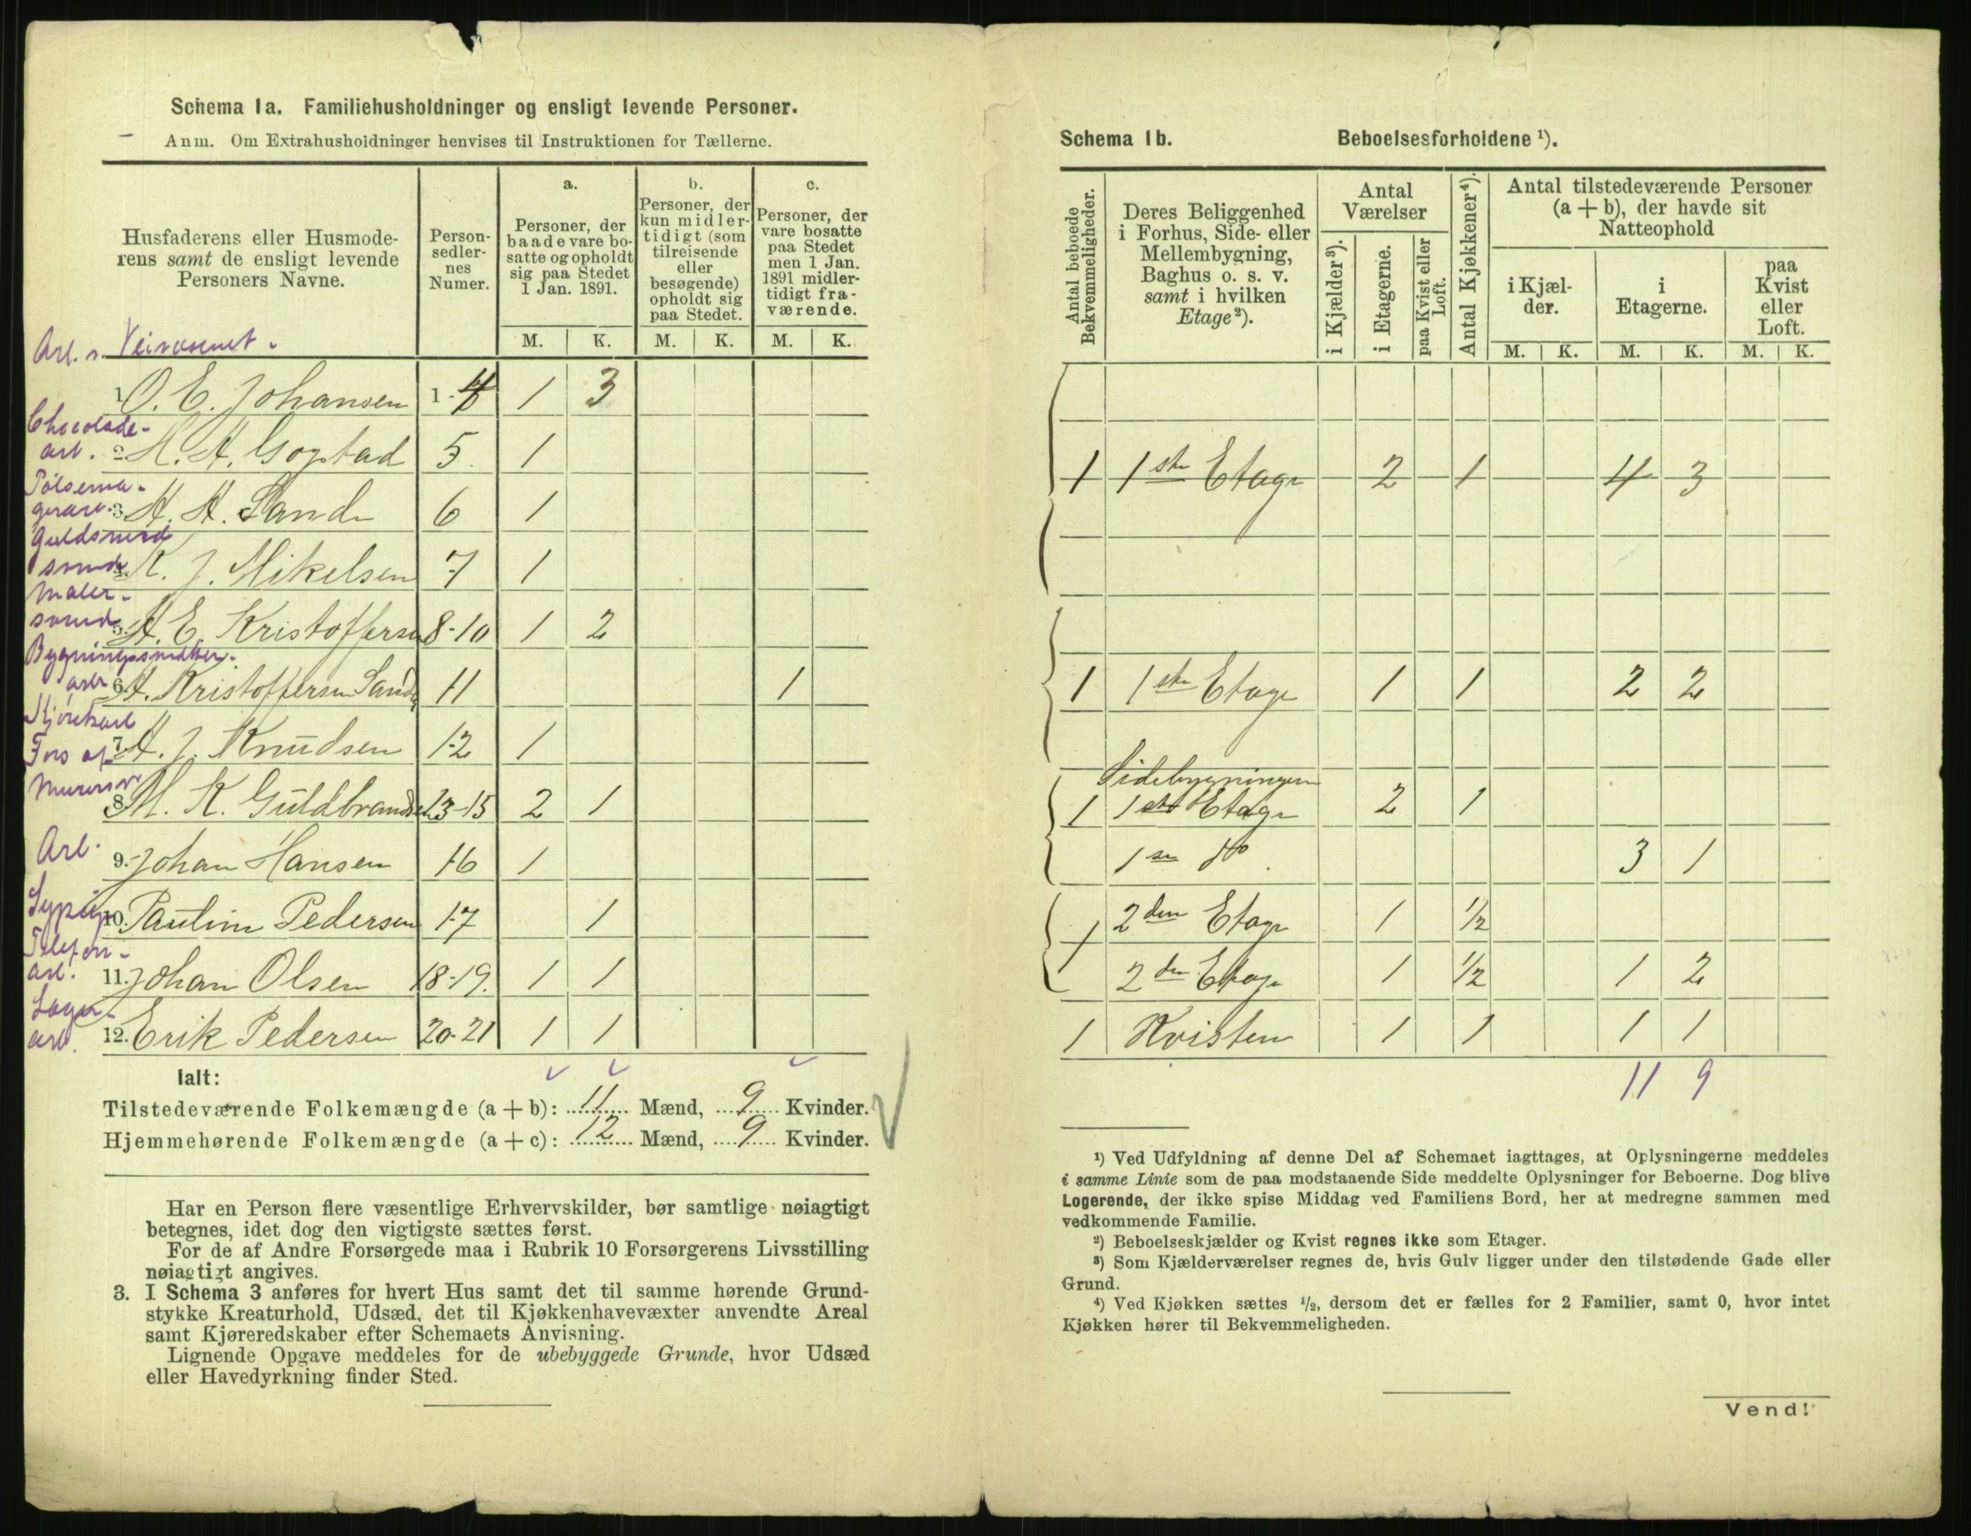 Schema 1a. Familiehusholdninger og ensligt levende Personer.
Anm. Om Extrahusholdninger henvises til Instruktionen for Tællerne.
Husfaderens eller Husmode-
rens samt de ensligt levende
Personers Navne.
Person-
sedler-
nes
Numer.
a.
Personer, der
baade vare bo-
satte og opholdt
sig paa Stedet
1 Jan. 1891.
b.
Personer, der
kun midler-
tidigt (som
tilreisende
eller
besøgende)
opholdt sig
paa Stedet.
c.
Personer, der
vare bosatte
paa Stedet
men 1 Jan.
1891 midler-
tidigt fra-
værende.
M. K. M. K. M. K.
Arb. v. Veivæsenet.
1. O. E. Johansen 1-4 1 3
Chocolade-
arb. 2. H. A. Gogstad 5. 1
Pølsema-
gerarb. 3. A. A. Sand 6 1
Guldsmed
svend 4. K. J. Mikelsen 7 1
Maler-
svend 5. A. E. Kristoffersen 8-10 1 2
Bygningssnedker-
arb 6. A. Kristoffersen Sand 11 1
Kjørekarl
7. A. J. Knudsen 12 1
Fors af
Murersv
8. M. K. Guldbrandsen 13-15 2 1
Arb. 9. Johan Hansen 16 1
Sypige 10. Pauline Pedersen 17 1
Telefon-
arb. 11. Johan Olsen 18-19. 1 1
Lager-
arb. 12. Erik Pedersen 20-21 1 1
Ialt:
Tilstedeværende Folkemængde (a + b): 11 Mænd, 9 Kvinder.
Hjemmehørende Folkemængde (a + c): 12 Mænd, 9 Kvinder.
Har en Person flere væsentlige Erhvervskilder, bør samtlige nøiagtigt
betegnes, idet dog den vigtigste sættes først.
For de af Andre Forsørgede maa i Rubrik 10 Forsørgerens Livsstilling
nøiagtigt angives.
3. I Schema 3 anføres for hvert Hus samt det til samme hørende Grund-
stykke Kreaturhold, Udsæd, det til Kjøkkenhavevæxter anvendte Areal
samt Kjøreredskaber efter Schemaets Anvisning.
Lignende Opgave meddeles for de ubebyggede Grunde, hvor Udsæd
eller Havedyrkning finder Sted.
Schema 1b. Beboelsesforholdene ¹).
Antal beboede
Bekvemmeligheder.
Deres Beliggenhed
i Forhus, Side- eller
Mellembygning,
Baghus o. s. v.
samt i hvilken
Etage²).
Antal
Værelser
i Kjælder³).
i Etagerne.
paa Kvist eller
Loft.
Antal Kjøkkener⁴).
Antal tilstedeværende Personer
(a + b), der havde sit
Natteophold
i Kjæl-
der.
i
Etagerne.
paa
Kvist
eller
Loft.
M. K. M. K. M. K.
1 1ste Etage 2 1 4 3
1 1ste Etage 1 1 2 2
Sidebygningen
1 1ste Etage 2 1
1ste do. 3 1
1 2den Etage 1 1/2
2den Etage 1 1/2 1 2
1 Kvisten 1 1 1 1
11 9
¹) Ved Udfyldning af denne Del af Schemaet iagttages, at Oplysningerne meddeles
i samme Linie som de paa modstaaende Side meddelte Oplysninger for Beboerne. Dog blive
Logerende, der ikke spise Middag ved Familiens Bord, her at medregne sammen med
vedkommende Familie.
²) Beboelseskjælder og Kvist regnes ikke som Etager.
³) Som Kjælderværelser regnes de, hvis Gulv ligger under den tilstødende Gade eller
Grund.
⁴) Ved Kjøkken sættes ½, dersom det er fælles for 2 Familier, samt 0, hvor intet
Kjøkken hører til Bekvemmeligheden.
Vend!